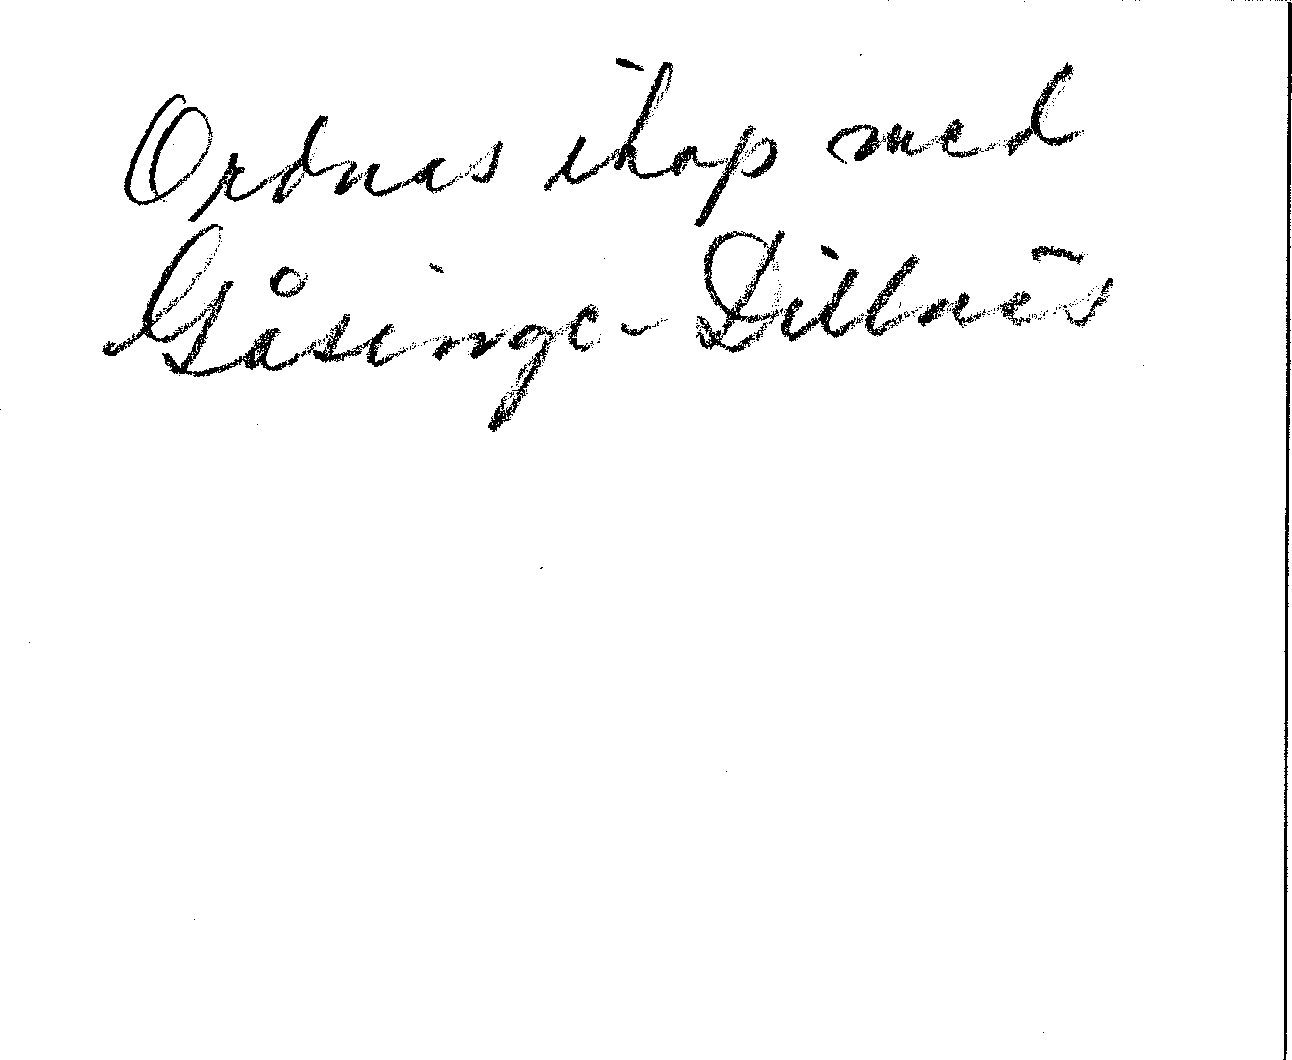 Ordnas ihop med
Gåsinge-Dillnäs